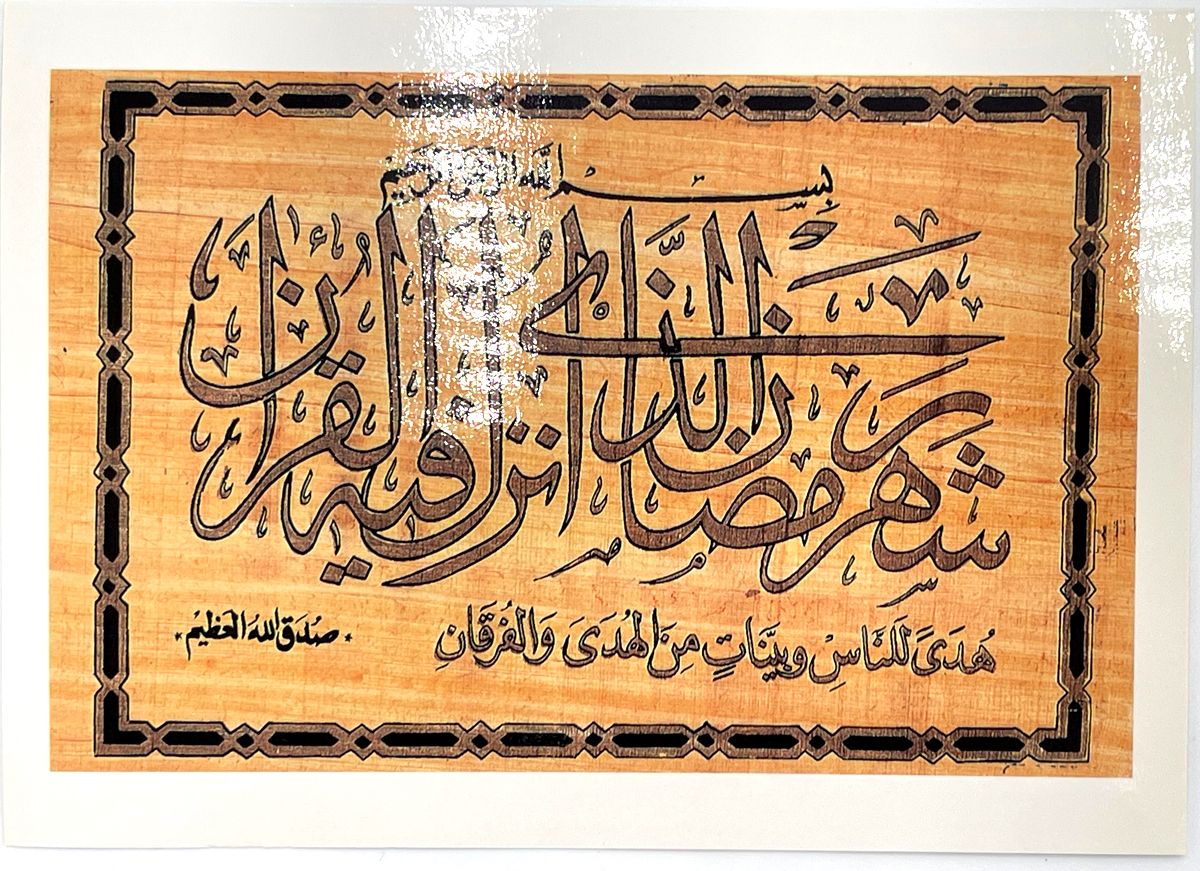 بِسْمِ اللَّهِ الرَّحْمَنِ الرَّحِيمِ
شَهْرُ رَمَضَانَ الَّذِى أُنْزِلَ فِيهِ الْقُرْآنُ
هُدَىً لِلنَّاسِ وَبَيِّنَاتٍ مِنَ الْهُدَىَ وَالْفُرْقَانِ
* صَدَقَ اللهُ العَظِيمُ *